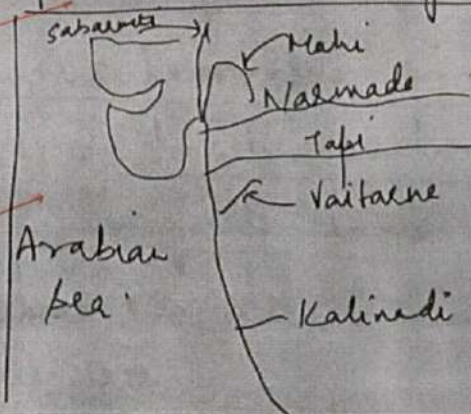 Sabarmati
Mahi
Narmada
Tapi
Vaitarne
Arabian
sea
Kalinadi